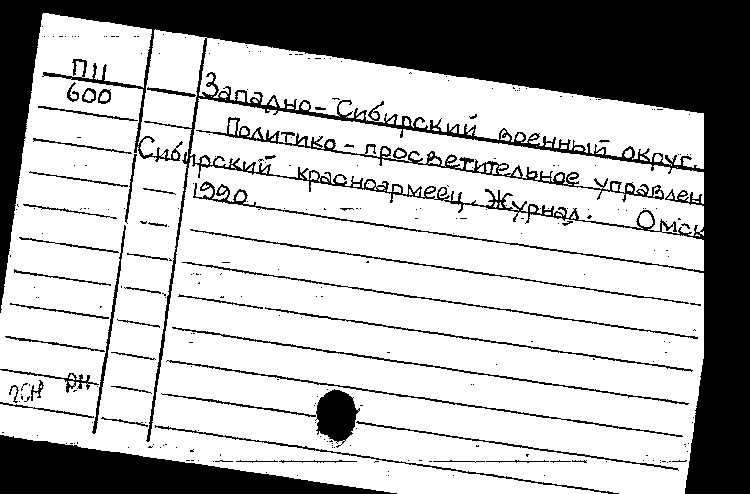 П11
600
Западно-Сибирский военный округ.
Политико-просветительное управлен
Сибирский красноармеец. Журнал. Омск
1990.